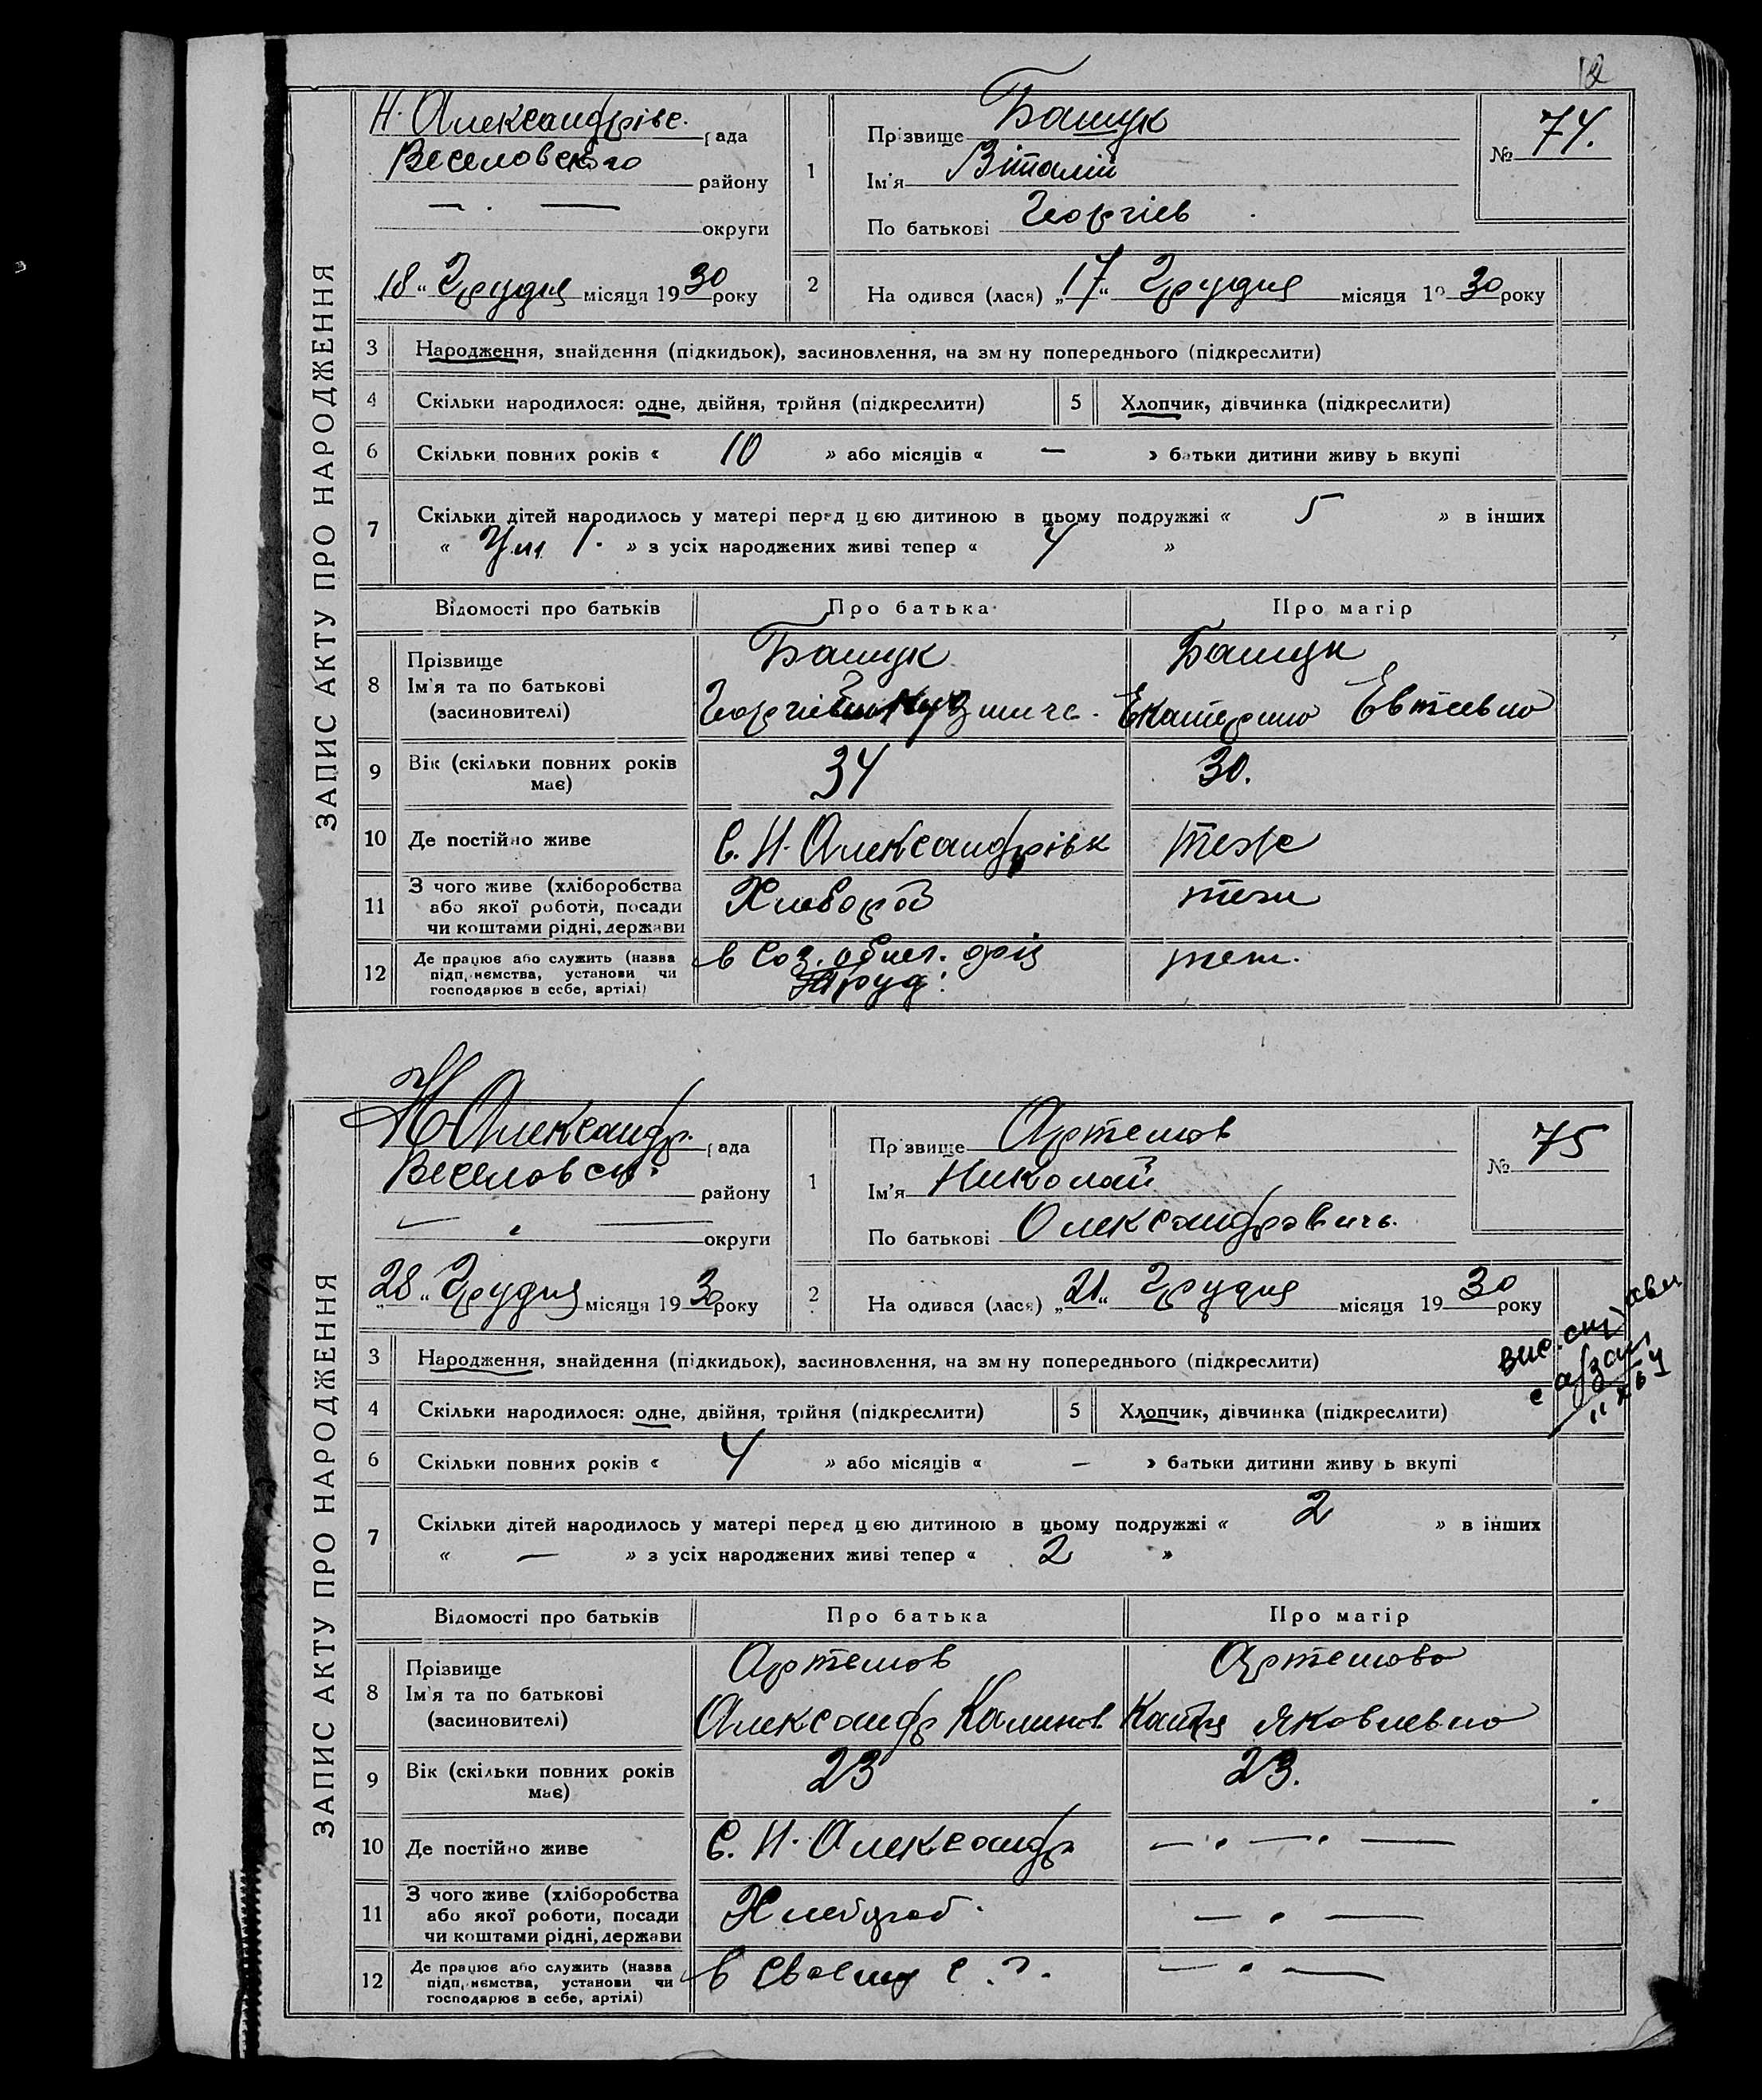 12
ЗАПИС АКТУ ПРО НАРОДЖЕННЯ
Н. Александрівс. рада
Веселовского району
— . — округи
„18“ Грудня місяця 1930 року
1
Прізвище Башук
Ім'я Віталій
По батькові Георгіев
№ 74.
2
На одився (лася) „17“ Грудня місяця 19 30 року
3 Народження, знайдення (підкидьок), засиновлення, на зм ну попереднього (підкреслити)
4 Скільки народилося: одне, двійня, трійня (підкреслити) 5 Хлопчик, дівчинка (підкреслити)
6 Скільки повних років « 10 » або місяців « — » батьки дитини живу ь вкупі
7 Скільки дітей народилось у матері перед цією дитиною в цьому подружжі « 5 » в інших
« Ум 1. » з усіх народжених живі тепер « 4 »
Відомості про батьків Про батька Про матір
8 Прізвище
Ім'я та по батькові
(засиновителі)
Башук
Георгій Кузмичь.
Башук
Екатерина Евтеевна
9 Вік (скільки повних років має) 34 30.
10 Де постійно живе С. Н. Александрівк теж
11 З чого живе (хліборобства
або якої роботи, посади
чи коштами рідні, держави
Хлебороб теж
12 Де працює або служить (назва
підп, иємства, установи чи
господарює в себе, артілі)
в Соз. теж.
Труд.
ЗАПИС АКТУ ПРО НАРОДЖЕННЯ
Н Александр. рада
Веселовск. району
— . — округи
„28“ Грудня місяця 1930 року
1
Пр звище Артемов
Ім'я Николай
По батькові Олександровичь.
№ 75
2
На одився (лася) „21“ Грудня місяця 19 30 року
3 Народження, знайдення (підкидьок), засиновлення, на зм ну попереднього (підкреслити)
4 Скільки народилося: одне, двійня, трійня (підкреслити) 5 Хлопчик, дівчинка (підкреслити)
6 Скільки повних років « 4 » або місяців « — » батьки дитини живу ь вкупі
7 Скільки дітей народилось у матері перед цією дитиною в цьому подружжі « 2 » в інших
« — » з усіх народжених живі тепер « 2 »
Відомості про батьків Про батька Про матір
8 Прізвище
Ім'я та по батькові
(засиновителі)
Артемов
Александр Калинов
Артемова
Катря Яковлевна
9 Вік (скільки повних років має) 23 23.
10 Де постійно живе С. Н. Александр — . — . —
11 З чого живе (хліборобства
або якої роботи, посади
чи коштами рідні, держави
Хлебороб. — . —
12 Де працює або служить (назва
підп, иємства, установи чи
господарює в себе, артілі)
в своему с. г. — . —